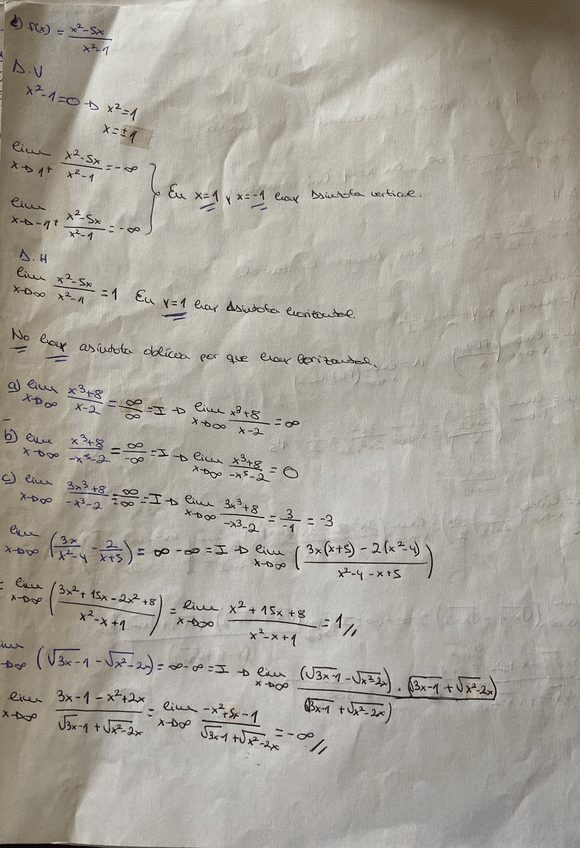 c) f(x) = x²-5x / x²-1
A.V
x²-1=0 → x²=1
x=±1
lim x→1⁺ x²-5x / x²-1 = -∞
En x=1 y x=-1 hay Asíntota vertical.
lim x→-1⁺ x²-5x / x²-1 = -∞
A.H
lim x→∞ x²-5x / x²-1 = 1 En y=1 hay Asíntota horizontal.
No hay asíntota oblicua por que hay horizontal.
a) lim x→∞ x³+8 / x-2 = ∞/∞ = I → lim x→∞ x³+8 / x-2 = ∞
b) lim x→∞ x³+8 / -x⁵-2 = ∞/-∞ = I → lim x→∞ x³+8 / -x⁵-2 = 0
c) lim x→∞ 3x³+8 / -x³-2 = ∞/-∞ = I → lim x→∞ 3x³+8 / -x³-2 = 3/-1 = -3
lim x→∞ (3x / x²-4 - 2 / x+5) = ∞-∞ = I → lim x→∞ (3x(x+5) - 2(x²-4) / x²-4-x+5)
= lim x→∞ (3x²+15x-2x²+8 / x²-x+1) = lim x→∞ x²+15x+8 / x²-x+1 = 1//
lim x→∞ (√3x-1 - √x²-2x) = ∞-∞ = I → lim x→∞ (√3x-1 - √x²-2x)·(√3x-1 + √x²-2x) / (√3x-1 + √x²-2x)
lim x→∞ 3x-1-x²+2x / √3x-1 + √x²-2x = lim x→∞ -x²+5x-1 / √3x-1 + √x²-2x = -∞//